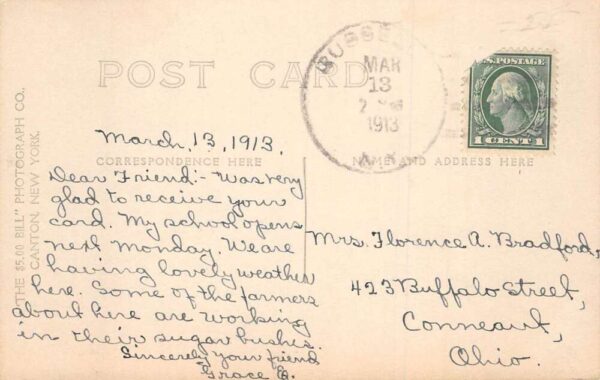 POST CARD
RUSSE
MAR
13
1913
U.S. POSTAGE
1 CENT 1
March, 13, 1913.
CORRESPONDENCE HERE
NAME AND ADDRESS HERE
Dear Friend:- Was very
glad to receive your
card. My school opens
next Monday. We are
having lovely weather
here. Some of the farmers
about here are working
in their sugar bushes.
Sincerely your friend
Grace E.
Mrs. Florence A. Bradford,
423 Buffalo Street,
Conneaut,
Ohio.
"THE $5.00 BILL" PHOTOGRAPH CO.,
CANTON, NEW YORK.